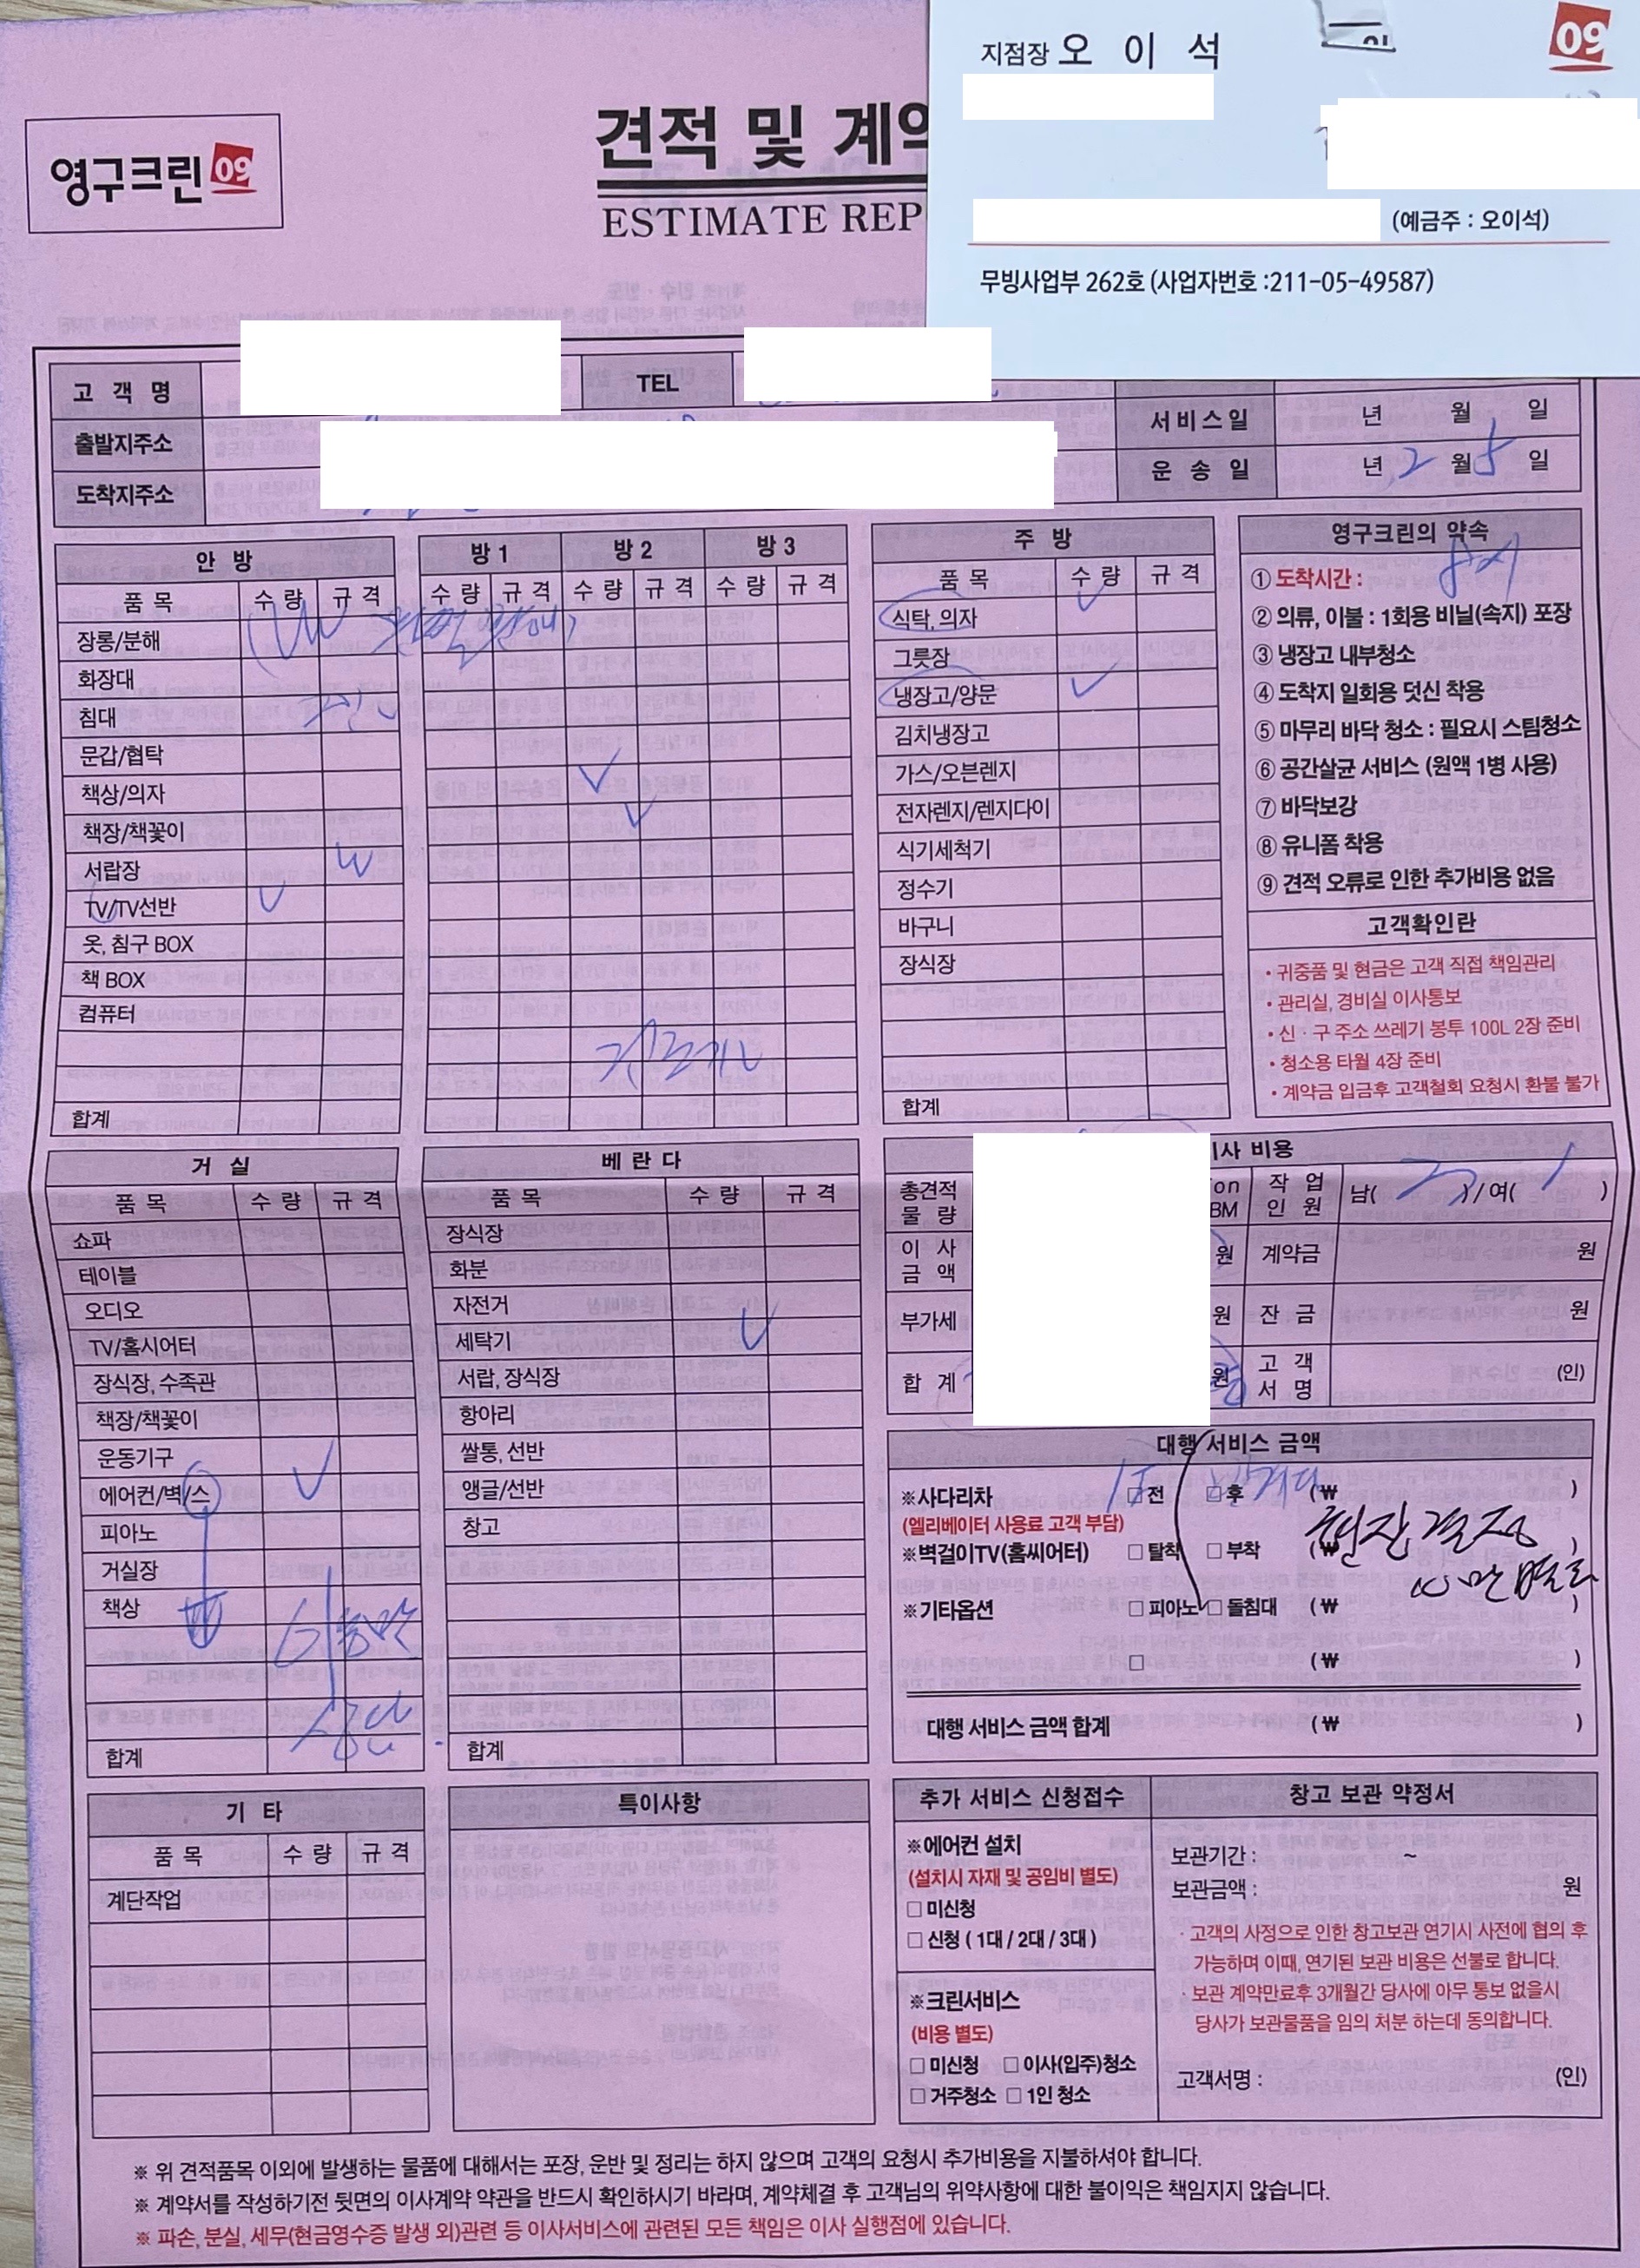 지점장 오 이 석
09
(예금주 : 오이석)
무빙사업부 262호 (사업자번호 :211-05-49587)
영구크린 09
견적 및 계약
ESTIMATE REP
고 객 명
TEL
출발지주소
서비스일 년 월 일
도착지주소
운 송 일 년 2 월 5 일
안 방
품 목 수 량 규 격
장롱/분해
화장대
침대
문갑/협탁
책상/의자
책장/책꽂이
서랍장
TV/TV선반
옷, 침구 BOX
책 BOX
컴퓨터
합계
방 1 방 2 방 3
수 량 규 격 수 량 규 격 수 량 규 격
주 방
품 목 수 량 규 격
식탁, 의자
그릇장
냉장고/양문
김치냉장고
가스/오븐렌지
전자렌지/렌지다이
식기세척기
정수기
바구니
장식장
합계
영구크린의 약속
① 도착시간 8시
② 의류, 이불 : 1회용 비닐(속지) 포장
③ 냉장고 내부청소
④ 도착지 일회용 덧신 착용
⑤ 마무리 바닥 청소 : 필요시 스팀청소
⑥ 공간살균 서비스 (원액 1병 사용)
⑦ 바닥보강
⑧ 유니폼 착용
⑨ 견적 오류로 인한 추가비용 없음
고객확인란
• 귀중품 및 현금은 고객 직접 책임관리
• 관리실, 경비실 이사통보
• 신 · 구 주소 쓰레기 봉투 100L 2장 준비
• 청소용 타월 4장 준비
• 계약금 입금후 고객철회 요청시 환불 불가
거 실
품 목 수 량 규 격
쇼파
테이블
오디오
TV/홈시어터
장식장, 수족관
책장/책꽂이
운동기구
에어컨/벽/스
피아노
거실장
책상
합계
베 란 다
품 목 수 량 규 격
장식장
화분
자전거
세탁기
서랍, 장식장
항아리
쌀통, 선반
앵글/선반
창고
합계
이사 비용
총견적 물 량
작 업 인 원 남( )/여( 1 )
이 사 금 액 원 계약금 원
부가세 원 잔 금 원
합 계 원 고 객 서 명 (인)
대행 서비스 금액
※사다리차 □전 □후 (₩ )
(엘리베이터 사용료 고객 부담)
현장결정
※벽걸이TV(홈씨어터) □ 탈착 □ 부착 (₩ )
※기타옵션 □ 피아노 □ 돌침대 (₩ )
□ (₩ )
대행 서비스 금액 합계 (₩ )
기 타
품 목 수 량 규 격
계단작업
특이사항
추가 서비스 신청접수
※에어컨 설치
(설치시 자재 및 공임비 별도)
□ 미신청
□ 신청 ( 1대 / 2대 / 3대 )
※크린서비스
(비용 별도)
□ 미신청 □ 이사(입주)청소
□ 거주청소 □ 1인 청소
창고 보관 약정서
보관기간 : ~
보관금액 : 원
· 고객의 사정으로 인한 창고보관 연기시 사전에 협의 후
가능하며 이때, 연기된 보관 비용은 선불로 합니다.
· 보관 계약만료후 3개월간 당사에 아무 통보 없을시
당사가 보관물품을 임의 처분 하는데 동의합니다.
고객서명 : (인)
※ 위 견적품목 이외에 발생하는 물품에 대해서는 포장, 운반 및 정리는 하지 않으며 고객의 요청시 추가비용을 지불하셔야 합니다.
※ 계약서를 작성하기전 뒷면의 이사계약 약관을 반드시 확인하시기 바라며, 계약체결 후 고객님의 위약사항에 대한 불이익은 책임지지 않습니다.
※ 파손, 분실, 세무(현금영수증 발생 외)관련 등 이사서비스에 관련된 모든 책임은 이사 실행점에 있습니다.